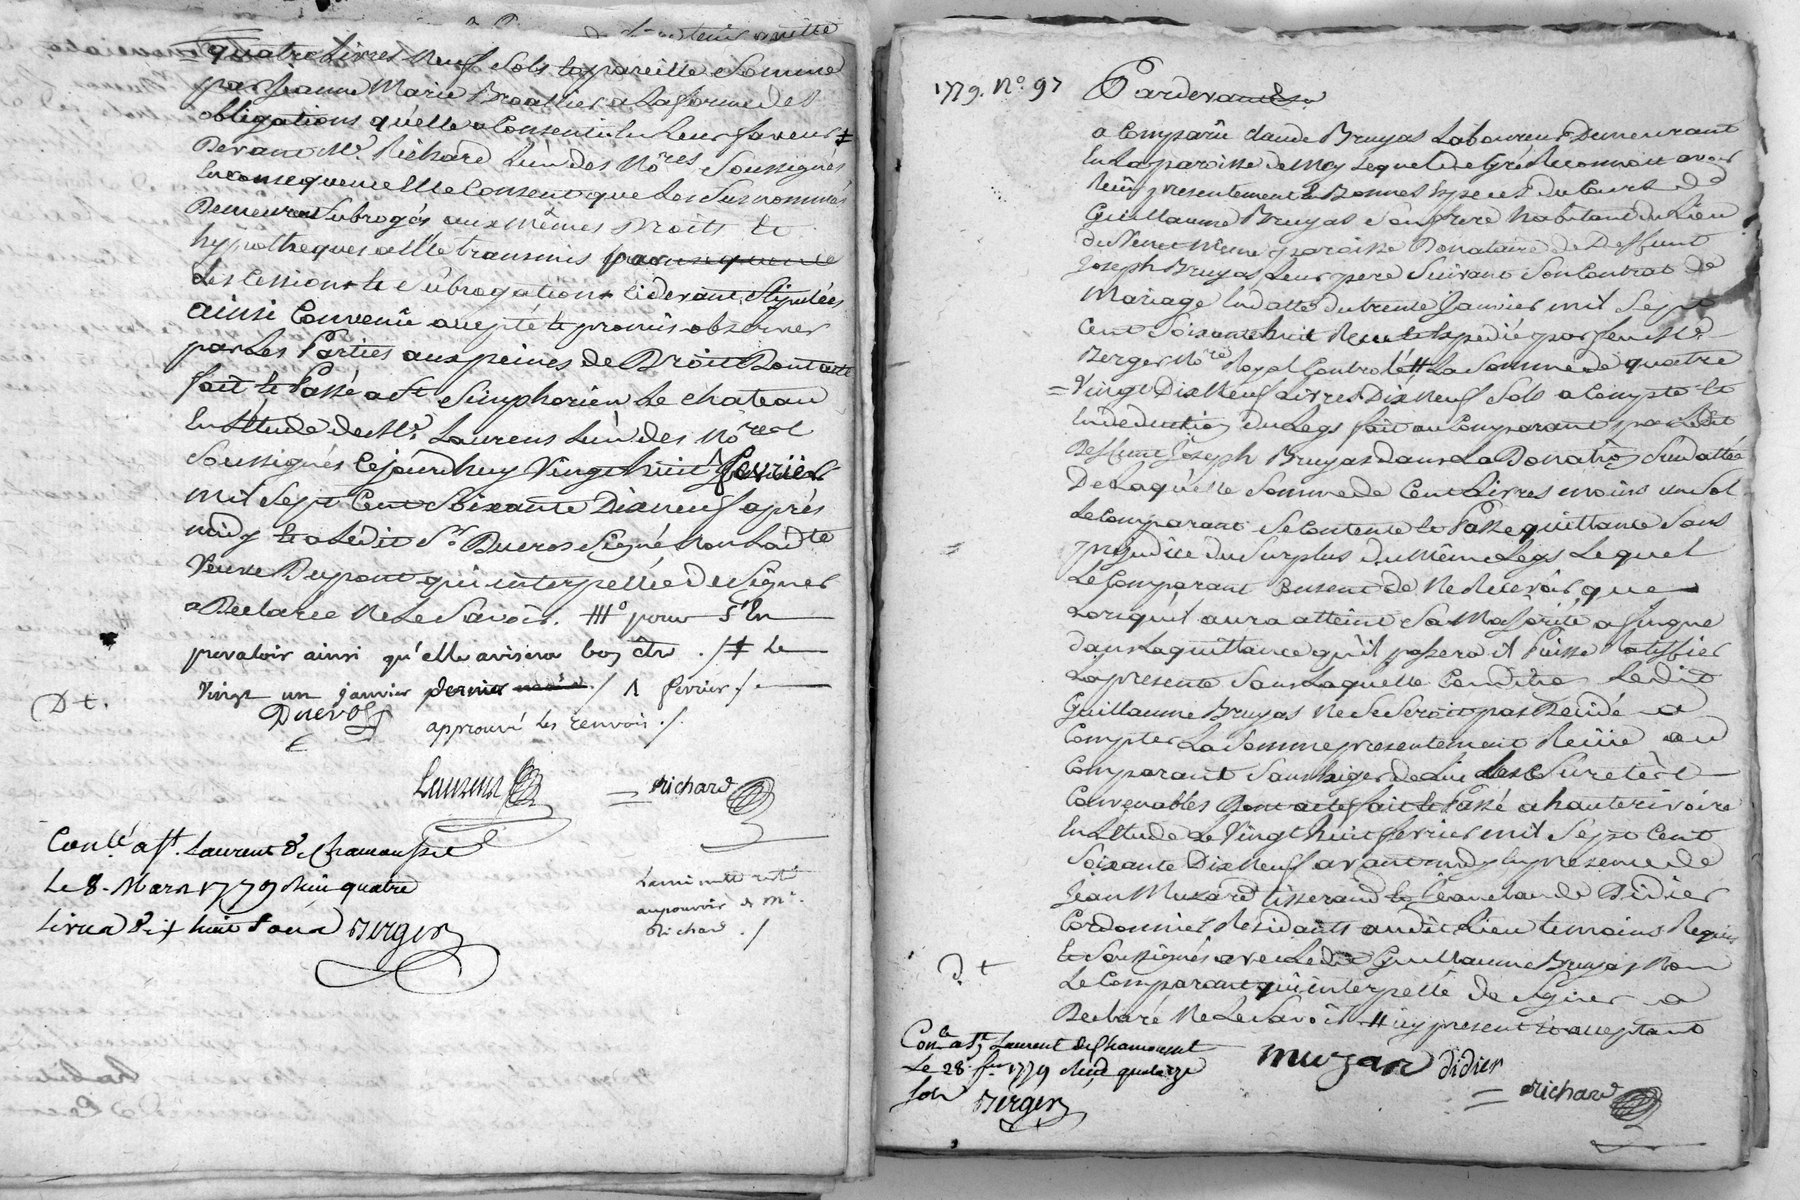 quatre Livres neuf Sols & pareille Somme
par Jeanne Marie Broallier a La forme des
obligations qu'elle a Consenti En Leur faveur ⧧
Devant Me. Richard L'un des No.res Soussignés
En consequence Elle Consent que Les Susnommés
Demeurent Subrogés aux mêmes Droits &
hypotheques a Elle transmis
Les Cessions & Subrogations Cidevant Stipulées
ainsi Convenû accepté & promis observer
par Les Parties aux peines de Droit Dont acte
fait & Passé a St. Simphorien Le chateau
En Etude de Me. Laurens L'un des No.res
Soussignés Cejourdhuy Vingt huit /\ fevrier
mil Sept Cent Soixante Dixneuf aprés
midy & a Ledit Sr. Duevos Signé non Lad.te
Veuve Dupont qui interpellée de Signer
a Declarée Ne Le Savoir. #° pour S'En
prevaloir ainsi qu'elle avisera bon être ./ ⧧ Le
Vingt un janvier dernier ./ /\ fevrier ./
Duevos
approuvé les renvois ./
D+.
Laurens
Richard
Con.lé a St. Laurent De Chamousset
Le 8. Mars 1779 Reçu quatre
Livres Dix huit Sous Berger
La minutte resté
au pouvoir de Me.
Richard ./
1779. N.o 97
Pardevant
a Comparû Claude Bruyas Laboureur Demeurant
En La paroisse de Mey Lequel de Gré Reconnoit avoir
Reçu presentement En Bonnes Especes du Cours de
Guillaume Bruyas Son frere habitant du Lieu
du Venet même paroisse Donataire de Deffunt
Joseph Bruyas Leur pere Suivant Son Contrat de
Mariage En datte du trente Janvier mil Sept
Cent Soixante huit Reçu & Expedié par feu Me.
Berger No.re Royal Controlé # La Somme de quatre
Vingt Dix Neuf Livres Dix Neuf Sols a Compte &
En deduction du Legs fait au Comparant par Ledit
Deffunt Joseph Bruyas dans La Donation Susdattée
De Laquelle Somme de Cent Livres moins un Sol
Le Comparant Se Contente & Passe quittance Sans
prejudice du Surplus du même Legs Lequel
Le Comparant Consent de Ne Recevoir que
Lorsqu'il aura atteint Sa Majorité afin que
dans La quittance qu'il passera il Puisse Ratiffier
La presente Sans Laquelle Condition Ledit
Guillaume Bruyas Ne Se Seroit pas Decidé a
Compter La Somme presentement Reçue au
Comparant Sans Exiger de Lui des Suretés
Convenables Dont acte fait & Passé a hauterivoire
En Etude Le Vingt huit fevrier mil Sept Cent
Soixante Dix Neuf avant midy En presence de
Jean Muzard tisserand & Jean Claude Didier
Cordonnier Residants audit Lieu temoins Requis
& Soussignés avec Ledit Guillaume Bruyas Non
Le Comparant qui interpellé de Signer a
Declaré Ne Le Savoir. # icy present & acceptant
D. +
Con.lé a St. Laurent de Chamousset
Le 28 fev. 1779 Reçu quatorze
sols Berger
muzar
didier
Richard